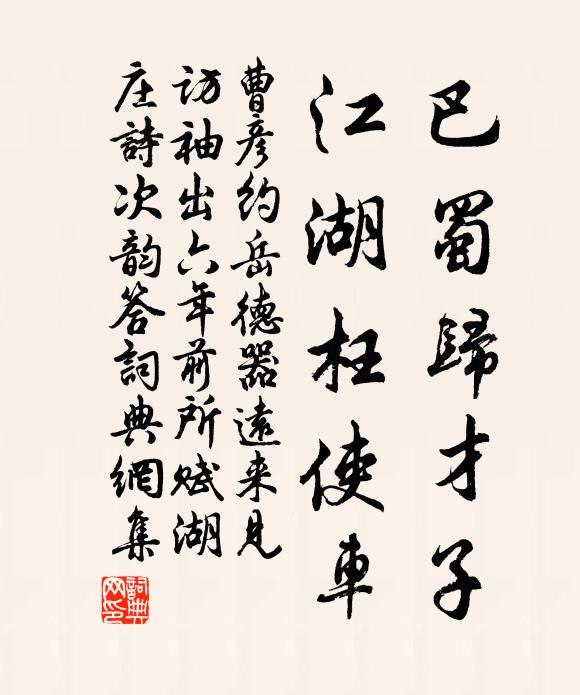 巴蜀歸才子
江湖枉使車
曹彦約岳德器遠来見
访袖出六年前所赋湖
庄詩次韵答詞典網集
詞典网印